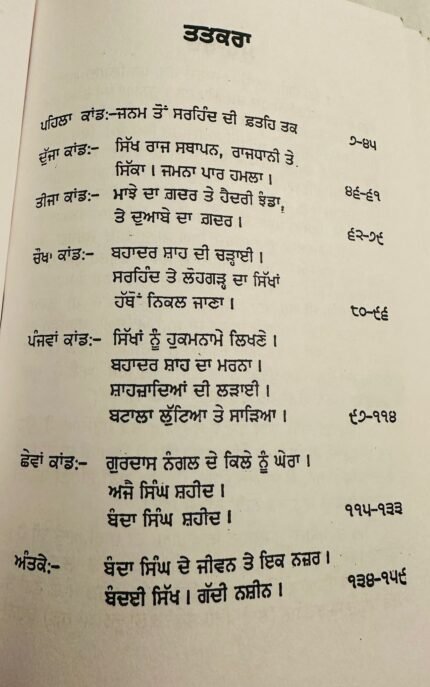 ਤਤਕਰਾ
ਪਹਿਲਾ ਕਾਂਡ:-ਜਨਮ ਤੋਂ ਸਰਹਿੰਦ ਦੀ ਫ਼ਤਹਿ ਤਕ ੭-੪੫
ਦੂੱਜਾ ਕਾਂਡ:- ਸਿੱਖ ਰਾਜ ਸਥਾਪਨ, ਰਾਜਧਾਨੀ ਤੇ
ਸਿੱਕਾ। ਜਮਨਾ ਪਾਰ ਹਮਲਾ। ੪੬-੬੧
ਤੀਜਾ ਕਾਂਡ:- ਮਾਝੇ ਦਾ ਗ਼ਦਰ ਤੇ ਹੈਦਰੀ ਝੰਡਾ,
ਤੇ ਦੁਆਬੇ ਦਾ ਗ਼ਦਰ। ੬੨-੭੯
ਚੌਥਾ ਕਾਂਡ:- ਬਹਾਦਰ ਸ਼ਾਹ ਦੀ ਚੜ੍ਹਾਈ।
ਸਰਹਿੰਦ ਤੇ ਲੋਹਗੜ੍ਹ ਦਾ ਸਿੱਖਾਂ
ਹੱਥੋਂ ਨਿਕਲ ਜਾਣਾ। ੮੦-੯੬
ਪੰਜਵਾਂ ਕਾਂਡ:- ਸਿੱਖਾਂ ਨੂੰ ਹੁਕਮਨਾਮੇ ਲਿਖਣੇ।
ਬਹਾਦਰ ਸ਼ਾਹ ਦਾ ਮਰਨਾ।
ਸ਼ਾਹਜ਼ਾਦਿਆਂ ਦੀ ਲੜਾਈ।
ਬਟਾਲਾ ਲੁੱਟਿਆ ਤੇ ਸਾੜਿਆ। ੯੭-੧੧੪
ਛੇਵਾਂ ਕਾਂਡ:- ਗੁਰਦਾਸ ਨੰਗਲ ਦੇ ਕਿਲੇ ਨੂੰ ਘੇਰਾ।
ਅਜੈ ਸਿੰਘ ਸ਼ਹੀਦ।
ਬੰਦਾ ਸਿੰਘ ਸ਼ਹੀਦ। ੧੧੫-੧੩੩
ਅੰਤਕੇ:- ਬੰਦਾ ਸਿੰਘ ਦੇ ਜੀਵਨ ਤੇ ਇਕ ਨਜ਼ਰ।
ਬੰਦਈ ਸਿੱਖ। ਗੱਦੀ ਨਸ਼ੀਨ। ੧੩੪-੧੫੯